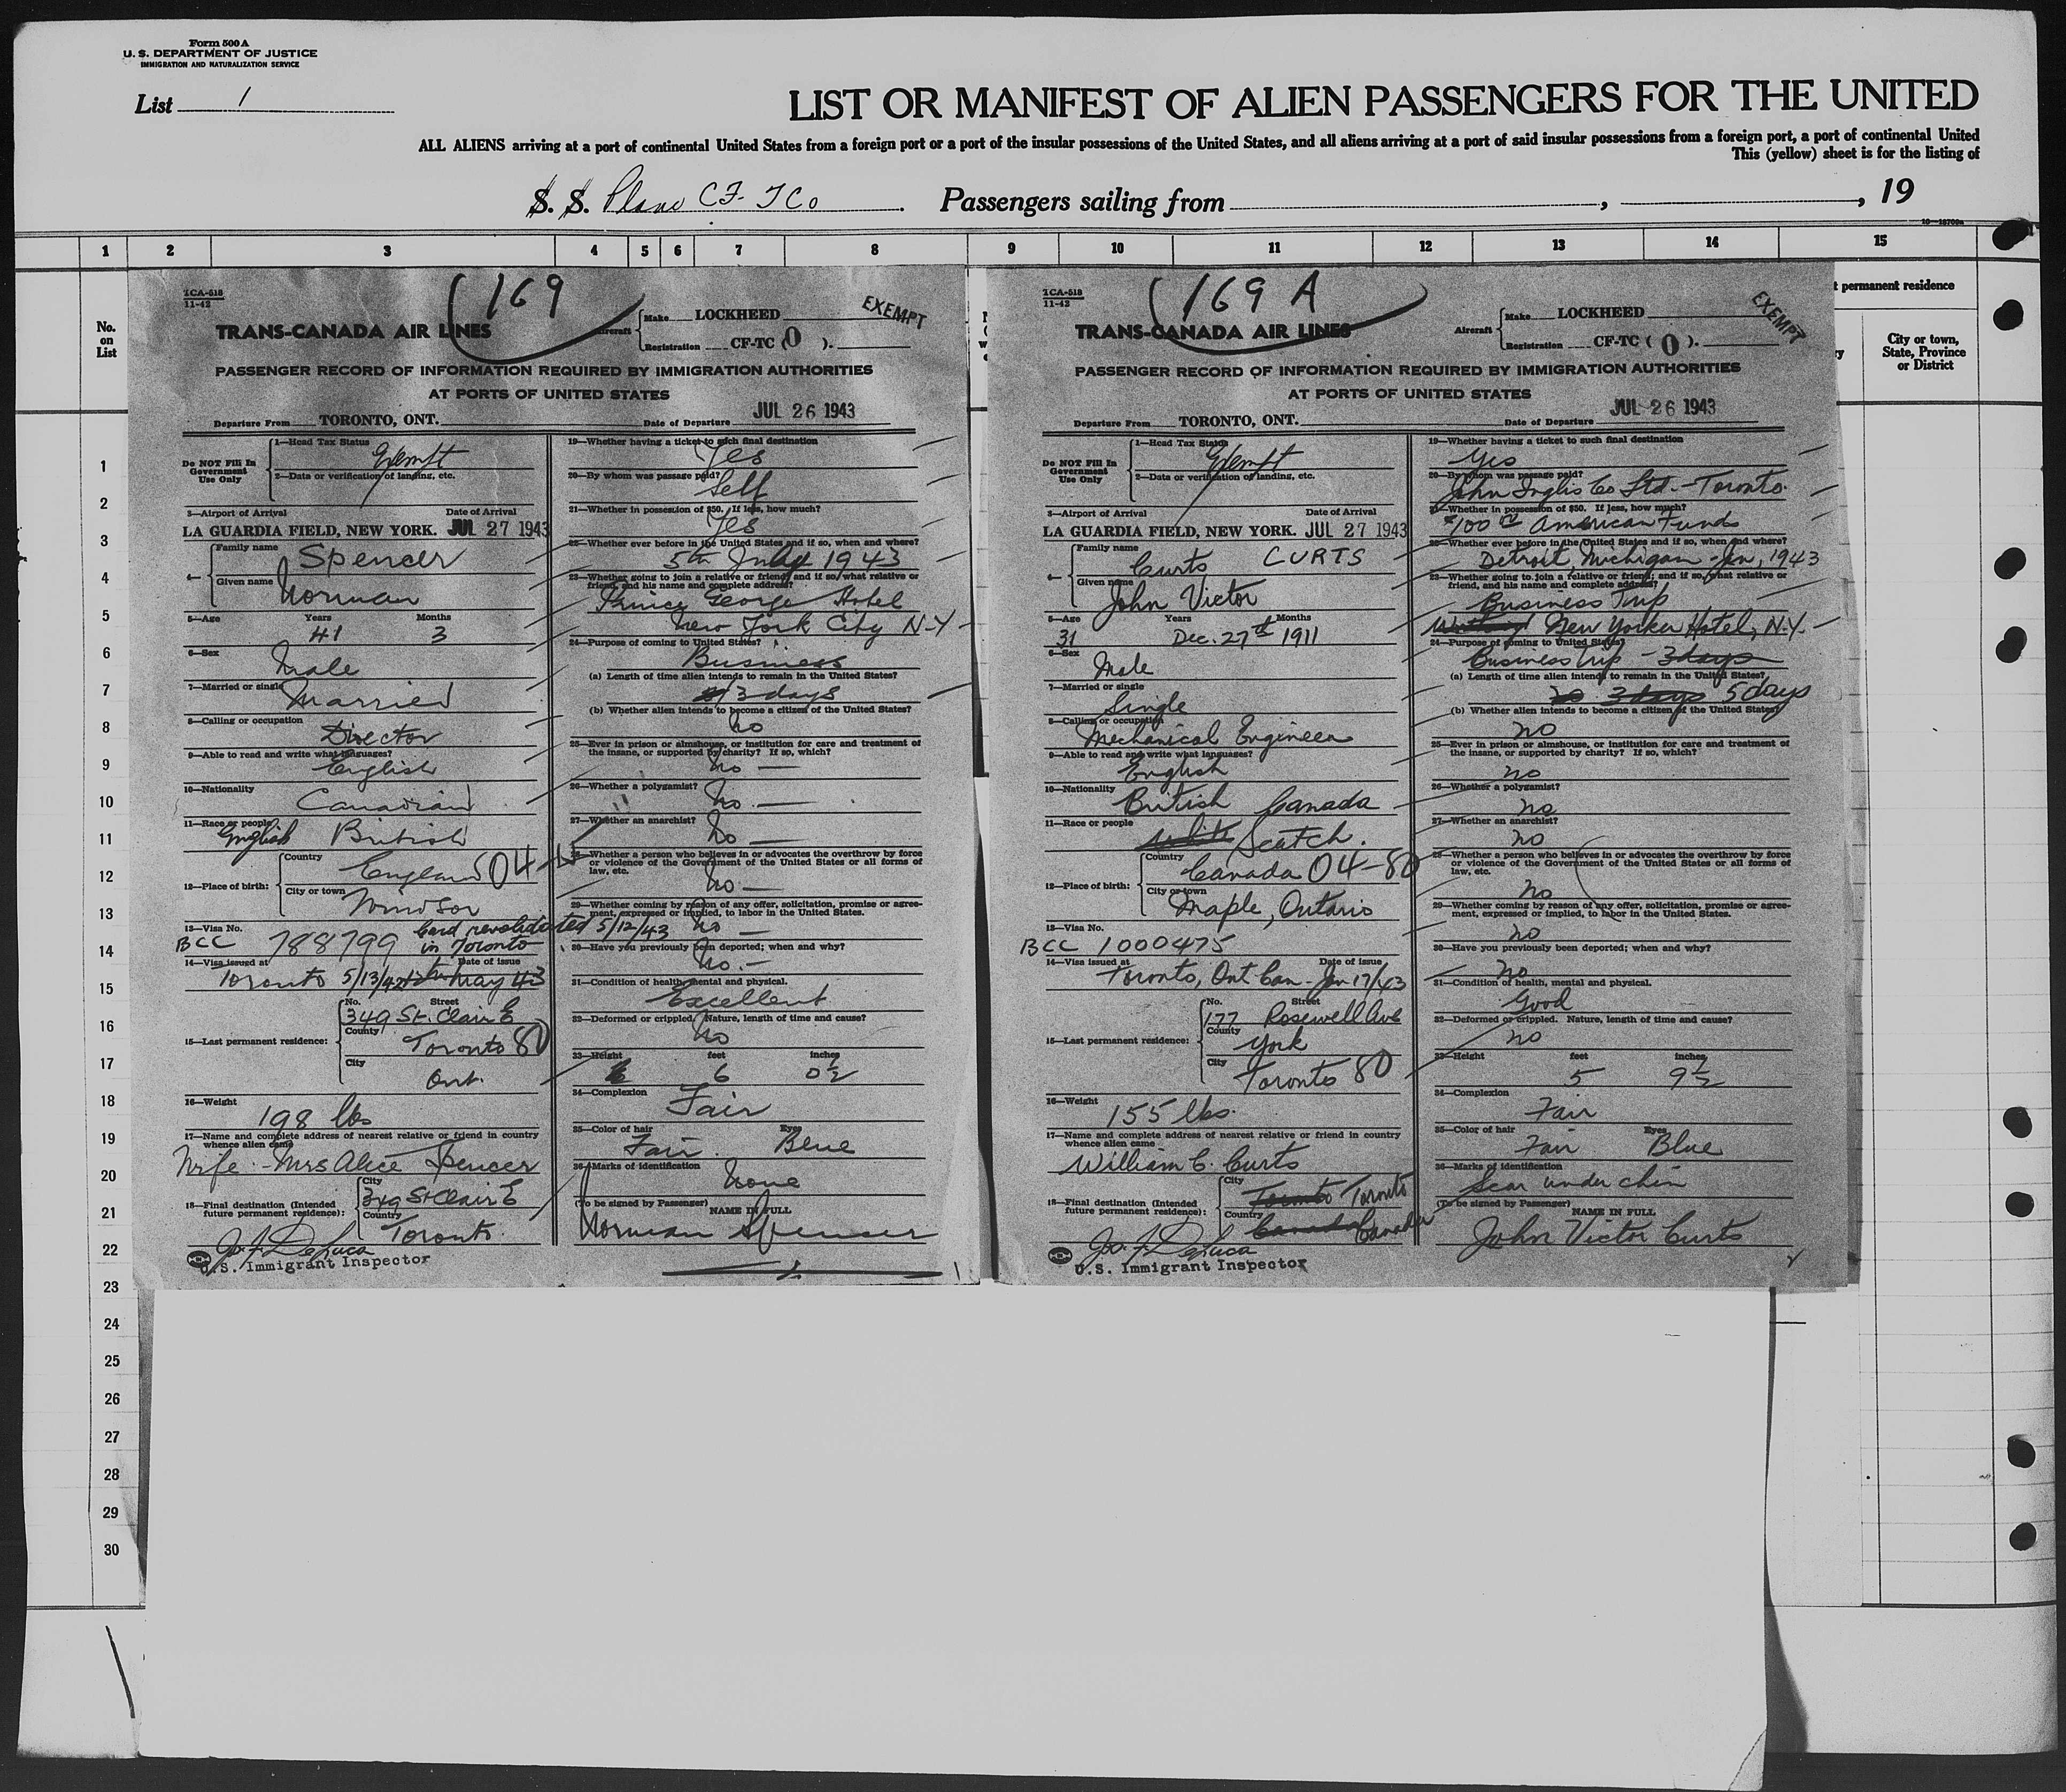 Form 500 A
U. S. DEPARTMENT OF JUSTICE
IMMIGRATION AND NATURALIZATION SERVICE
List 1
LIST OR MANIFEST OF ALIEN PASSENGERS FOR THE UNITED
ALL ALIENS arriving at a port of continental United States from a foreign port or a port of the insular possessions of the United States, and all aliens arriving at a port of said insular possessions from a foreign port, a port of continental United
This (yellow) sheet is for the listing of
S. S. Plane CF-TCo. Passengers sailing from , , 19
1 2 3 4 5 6 7 8 9 10 11 12 13 14 15
No. on List
t permanent residence
City or town, State, Province or District
1
2
3
4
5
6
7
8
9
10
11
12
13
14
15
16
17
18
19
20
21
22
23
24
25
26
27
28
29
30
TCA-518
11-42
169
EXEMPT
TRANS-CANADA AIR LINES
Aircraft Make LOCKHEED
Registration CF-TC (O).
PASSENGER RECORD OF INFORMATION REQUIRED BY IMMIGRATION AUTHORITIES
AT PORTS OF UNITED STATES
Departure From TORONTO, ONT. Date of Departure JUL 26 1943
Do NOT Fill In Government Use Only
1—Head Tax Status Exempt
2—Data or verification of landing, etc.
3—Airport of Arrival Date of Arrival
LA GUARDIA FIELD, NEW YORK. JUL 27 1943
4— Family name Spencer
Given name Norman
5—Age Years Months
41 3
6—Sex
Male
7—Married or single
Married
8—Calling or occupation
Director
9—Able to read and write what languages?
English
10—Nationality
Canadian
11—Race or people
English British
12—Place of birth: Country England 04-
City or town Windsor
13—Visa No.
BCC 788799 Card revalidated 5/12/43
in Toronto
14—Visa issued at Date of issue
Toronto 5/13/42 May 43
15—Last permanent residence:
No. Street
349 St. Clair E
County
Toronto 80
City
Ont.
16—Weight
198 lbs
17—Name and complete address of nearest relative or friend in country whence alien came
Wife - Mrs Alice Spencer
18—Final destination (Intended future permanent residence):
City
349 St Clair E
Country
Toronto.
Jos. F. DeLuca
U.S. Immigrant Inspector
19—Whether having a ticket to such final destination
Yes
20—By whom was passage paid?
Self
21—Whether in possession of $50. If less, how much?
Yes
22—Whether ever before in the United States and if so, when and where?
5th July 1943
23—Whether going to join a relative or friend; and if so, what relative or friend, and his name and complete address?
Prince George Hotel
New York City N-Y
24—Purpose of coming to United States?
Business
(a) Length of time alien intends to remain in the United States?
3 days
(b) Whether alien intends to become a citizen of the United States?
No
25—Ever in prison or almshouse, or institution for care and treatment of the insane, or supported by charity? If so, which?
no —
26—Whether a polygamist?
No. —
27—Whether an anarchist?
No —
28—Whether a person who believes in or advocates the overthrow by force or violence of the Government of the United States or all forms of law, etc.
No —
29—Whether coming by reason of any offer, solicitation, promise or agreement, expressed or implied, to labor in the United States.
No —
30—Have you previously been deported; when and why?
No. —
31—Condition of health, mental and physical.
Excellent
32—Deformed or crippled. Nature, length of time and cause?
No
33—Height feet inches
6 0½
34—Complexion
Fair
35—Color of hair Eyes
Fair. Blue
36—Marks of identification
None
(To be signed by Passenger) NAME IN FULL
Norman Spencer
TCA-518
11-42
169 A
EXEMPT
TRANS-CANADA AIR LINES
Aircraft Make LOCKHEED
Registration CF-TC (O).
PASSENGER RECORD OF INFORMATION REQUIRED BY IMMIGRATION AUTHORITIES
AT PORTS OF UNITED STATES
Departure From TORONTO, ONT. Date of Departure JUL 26 1943
Do NOT Fill In Government Use Only
1—Head Tax Status Exempt
2—Data or verification of landing, etc.
3—Airport of Arrival Date of Arrival
LA GUARDIA FIELD, NEW YORK. JUL 27 1943
4— Family name Curts CURTS
Given name John Victor
5—Age Years Months
31 Dec. 27th 1911
6—Sex
Male
7—Married or single
Single
8—Calling or occupation
Mechanical Engineer
9—Able to read and write what languages?
English
10—Nationality
British Canada
11—Race or people
white Scotch.
12—Place of birth: Country Canada 04-80
City or town Maple, Ontario
13—Visa No.
BCC 1000475
14—Visa issued at Date of issue
Toronto, Ont Can - Jan 17/43
15—Last permanent residence:
No. Street
177 Rosewell Ave
County
York
City
Toronto 80
16—Weight
155 lbs.
17—Name and complete address of nearest relative or friend in country whence alien came
William C. Curts
18—Final destination (Intended future permanent residence):
City
Toronto Toronto
Country
Canada Canada
Jos. F. DeLuca
U.S. Immigrant Inspector
19—Whether having a ticket to such final destination
Yes
20—By whom was passage paid?
John Inglis Co Ltd. - Toronto.
21—Whether in possession of $50. If less, how much?
$100 American Funds
22—Whether ever before in the United States and if so, when and where?
Detroit, Michigan - Jan, 1943
23—Whether going to join a relative or friend; and if so, what relative or friend, and his name and complete address?
Business Trip
New Yorker Hotel, N.Y.
24—Purpose of coming to United States?
Business trip - 3 days
(a) Length of time alien intends to remain in the United States?
3 days 5 days
(b) Whether alien intends to become a citizen of the United States?
No
25—Ever in prison or almshouse, or institution for care and treatment of the insane, or supported by charity? If so, which?
no
26—Whether a polygamist?
no
27—Whether an anarchist?
no
28—Whether a person who believes in or advocates the overthrow by force or violence of the Government of the United States or all forms of law, etc.
no
29—Whether coming by reason of any offer, solicitation, promise or agreement, expressed or implied, to labor in the United States.
no
30—Have you previously been deported; when and why?
no
31—Condition of health, mental and physical.
Good
32—Deformed or crippled. Nature, length of time and cause?
no
33—Height feet inches
5 9½
34—Complexion
Fair
35—Color of hair Eyes
Fair Blue
36—Marks of identification
Scar under chin
(To be signed by Passenger) NAME IN FULL
John Victor Curts